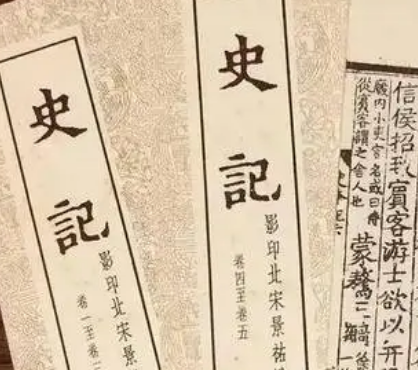 史記
影印北宋景
卷一至卷二
史記
影印北宋景祐
卷四至卷五
信侯招致賓客游士欲以并
廄內小吏官名或曰侍
從賓客謂之舍人也
蒙驁